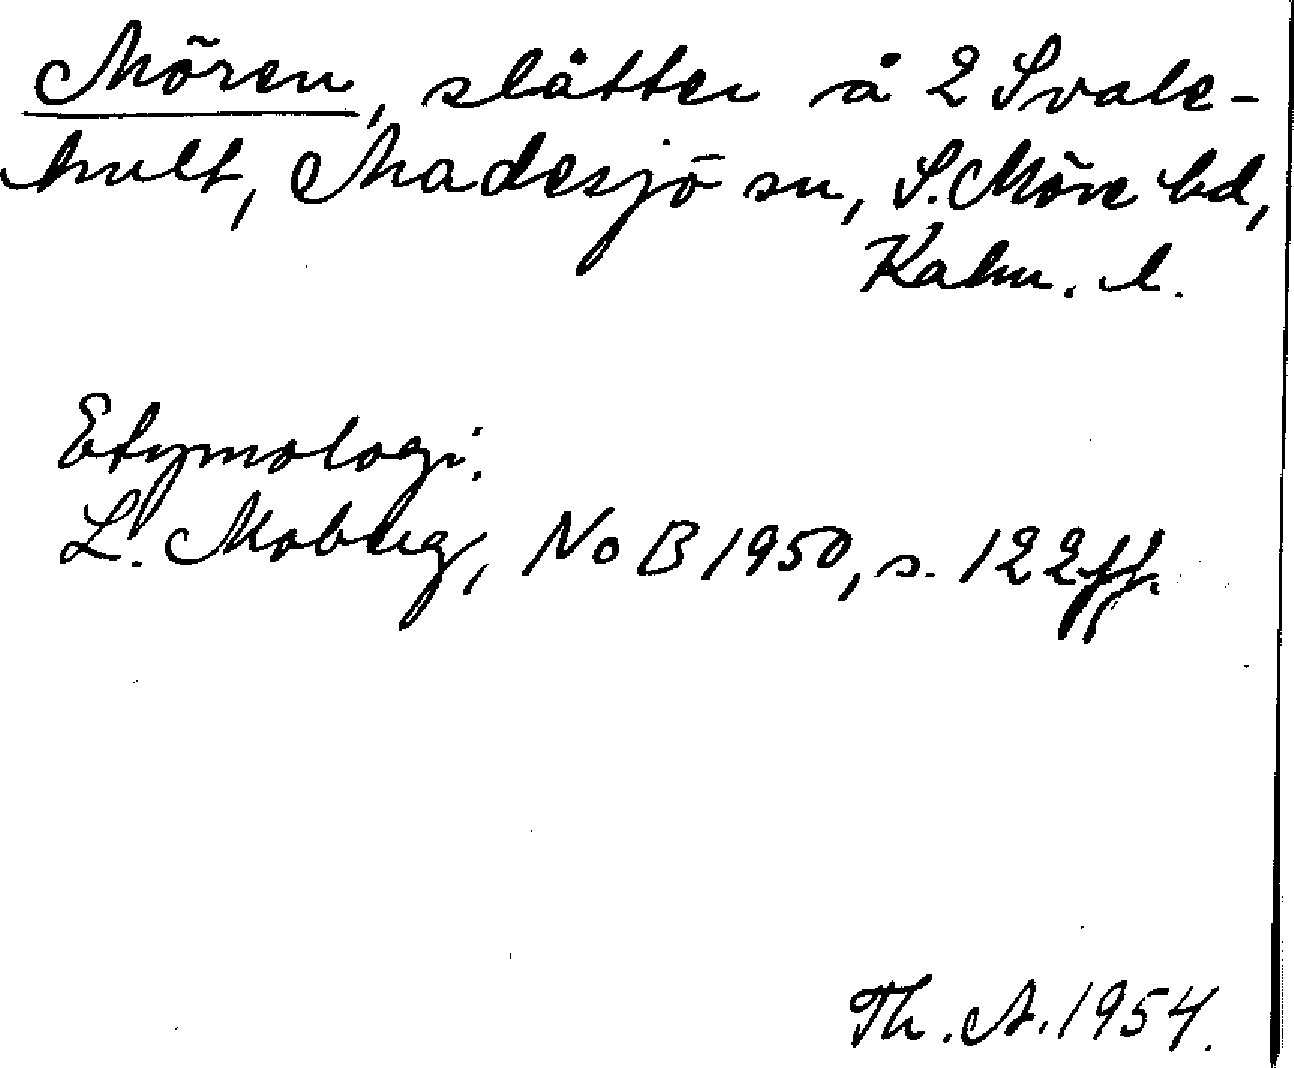 Mören, slåtter å 2 Svale-
hult, Madesjö sn, S. Möre hd,
Kalm. l.
Etymologi:
L. Moberg, NoB 1950, s. 122 ff.
Th. A. 1954.